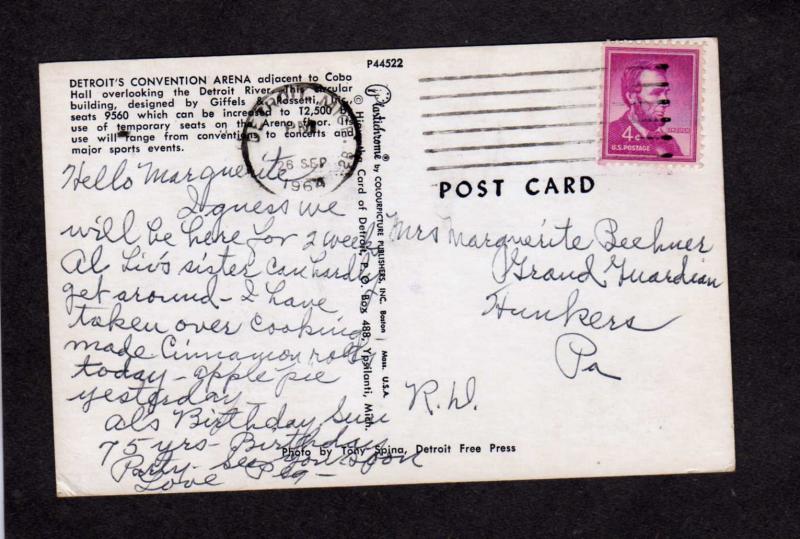 P44522
DETROIT'S CONVENTION ARENA adjacent to Cobo
Hall overlooking the Detroit River. This circular
building, designed by Giffels & Rossetti, Inc.,
seats 9560 which can be increased to 12,500 by
use of temporary seats on the Arena floor. Its
use will range from conventions to concerts and
major sports events.
DETROIT, MICH.
PM
26 SEP
1964
4¢
U.S. POSTAGE
POST CARD
Hello Marguerite
I guess we
will be here for 2 weeks
Al sister can hardly
get around - I have
taken over cooking
made Cinnamon rolls
today - apple pie
yesterday -
Als Birthday Sun
75 yrs - Birthday
Party - See you soon
Love Peg -
Plastichrome® by COLOURPICTURE PUBLISHERS, INC. Boston, Mass. U.S.A.
the Card of Detroit, P. O. Box 488, Ypsilanti, Mich.
Mrs Marguerite Beehner
Grand Guardian
Hunkers
Pa
R.D.
Photo by Tony Spina, Detroit Free Press